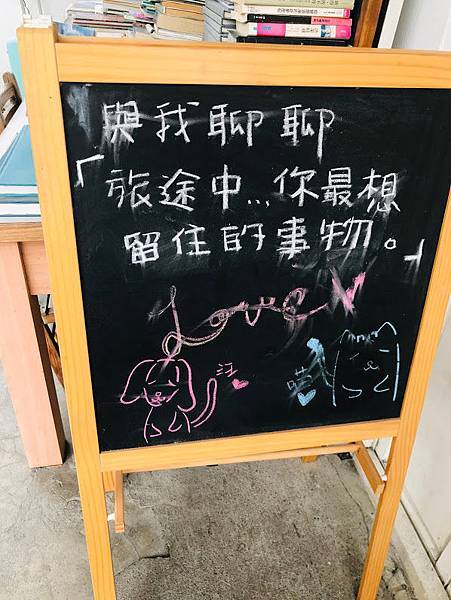 與我聊聊
「旅途中...你最想
留住的事物。」
Love
汪
喵